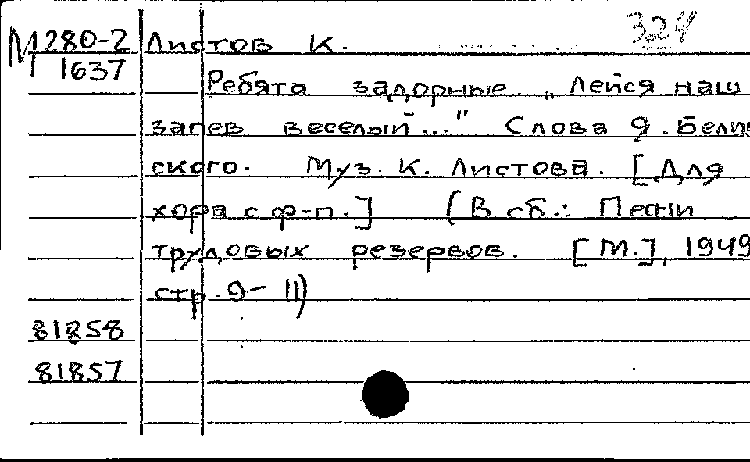 324
М 280-2 Листов К.
1637
Ребята задорные „Лейся наш
запев веселый..." Слова Я. Белин
ского. Муз. К. Листова. [Для
хора с ф-п.] (В сб.: Песни
трудовых резервов. [М.], 1949
стр. 9-11)
81858
81857